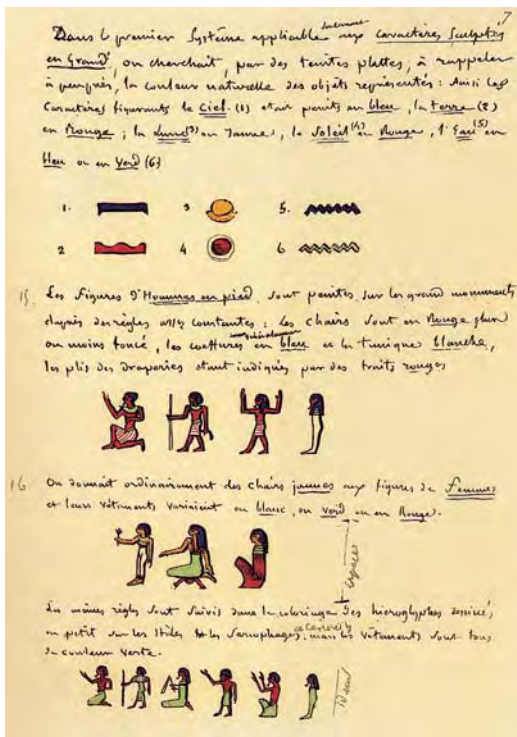 7
Dans le premier Système applicable seulement aux caractères sculptés
en Grand, on cherchait, par des teintes plattes, à rappeler
à peu près, la couleur naturelle des objets représentés : Ainsi les
caractères figurants le Ciel (1) étair peints en bleu, la terre (2)
en Rouge ; la Lune (3) en Jaune, le Soleil (4) en Rouge, l'Eau (5) en
bleu ou en Verd (6)
1. 3 5.
2 4 6
15. Les figures d'Hommes en pied, sont peintes sur les grand monuments
d'après des règles assez constantes : les chairs sont en Rouge plus
ou moins foncé, les coeffures généralement en bleu et la tunique blanche,
les plis des draperies étant indiqués par des traits rouges
16 On donnait ordinairement des chairs jaunes aux figures de femmes
et leurs vêtements variaient en blanc, en verd ou en Rouge.
espacer
Les mêmes règles sont suivis dans le coloriage des hieroglyphes dessinés
en petit sur les Stèles et les Sarcophages ; mais les vêtements sont tous
de couleur verte.